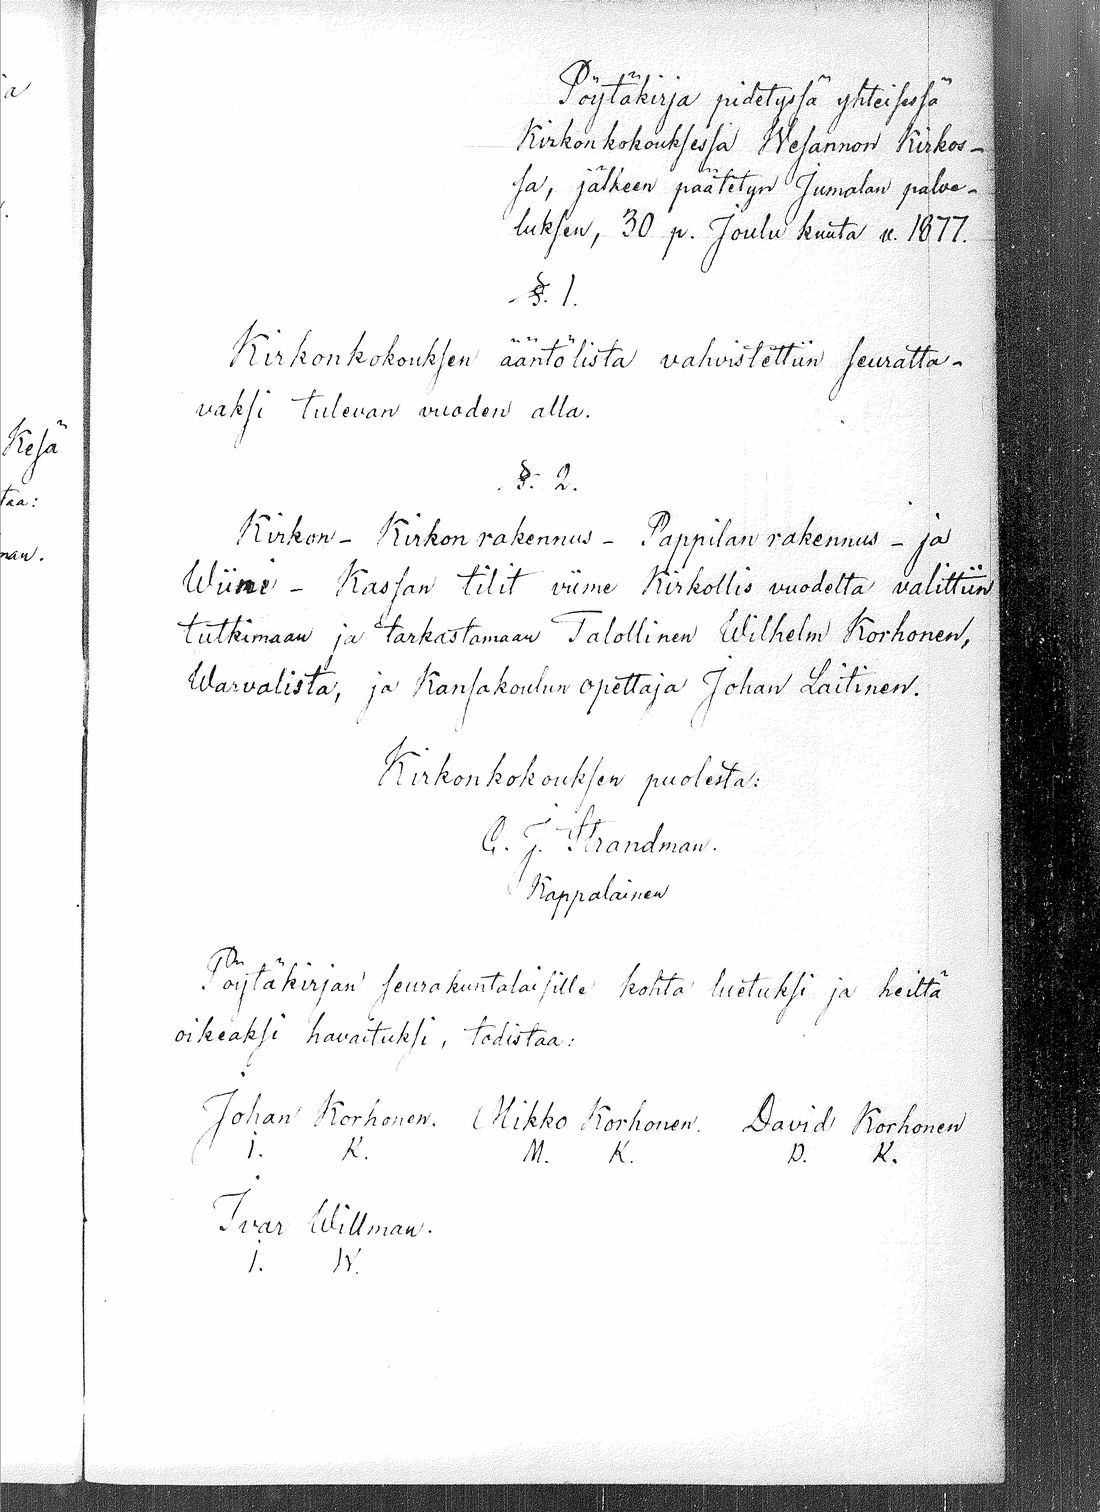 Pöytäkirja pidetyssä yhteisessä
Kirkonkokouksessa Wesannon Kirkos-
sa, jälkeen päätetyn Jumalan palve-
luksen, 30 p. Joulu kuuta v. 1877.
§. 1.
Kirkonkokouksen ääntölista vahvistettiin seuratta-
vaksi tulevan vuoden alla.
§. 2.
Kirkon- Kirkon rakennus - Pappilan rakennus - ja
Wiini - Kassan tilit viime Kirkollis vuodelta valittiin
tutkimaan ja tarkastamaan Talollinen Wilhelm Korhonen,
Warvalista, ja Kansakoulun opettaja Johan Laitinen.
Kirkonkokouksen puolesta:
G. J. Strandman.
Kappalainen
Pöytäkirjan seurakuntalaisille kohta luetuksi ja heiltä
oikeaksi havaituksi, todistaa:
Johan Korhonen. Mikko Korhonen. David Korhonen
J. K. M. K. D. K.
Ivar Willman.
I. W.
Kesä
taa:
man.